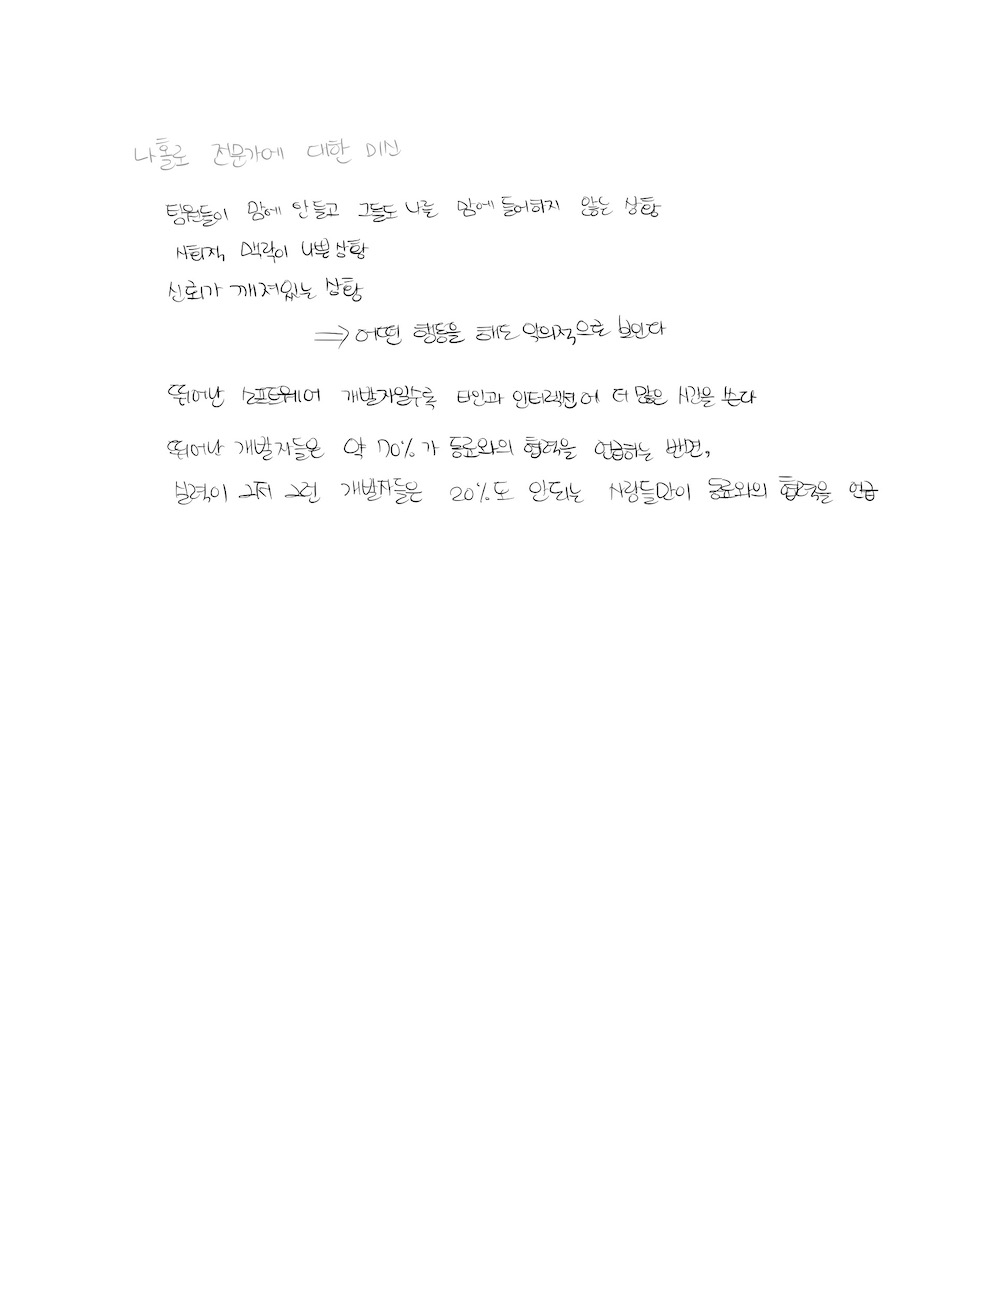 나홀로 전문가에 대한 미신
팀원들이 맘에 안들고 그들도 나를 맘에 들어하지 않는 상황
사회적, 맥락이 나쁜 상황
신뢰가 깨져있는 상황
⇒ 어떤 행동을 해도 악의적으로 보인다
뛰어난 소프트웨어 개발자일수록 타인과 인터랙션에 더 많은 시간을 쓴다
뛰어난 개발자들은 약 70%가 동료와의 협력을 언급하는 반면,
실력이 그저 그런 개발자들은 20%도 안되는 사람들만이 동료와의 협력을 언급